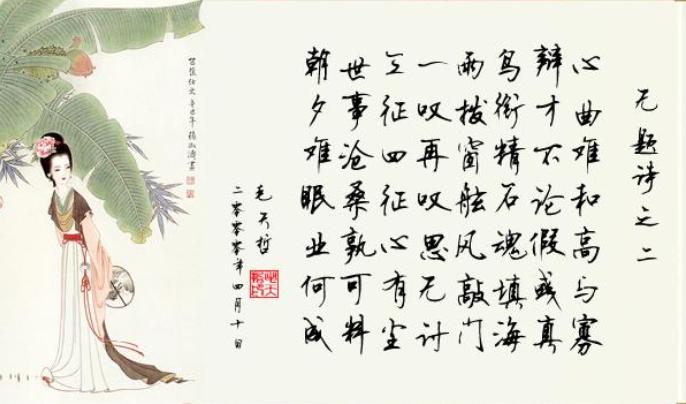 无题诗之二
心曲难和高与寡
辩才不论假或真
鸟衔精石魂填海
雨拨窗舷风敲门
一叹再叹思无计
三征四征心有尘
世事沧桑孰可料
朝夕难眠业何成
毛天哲
二零零零年四月十日
仕女 辛巳年